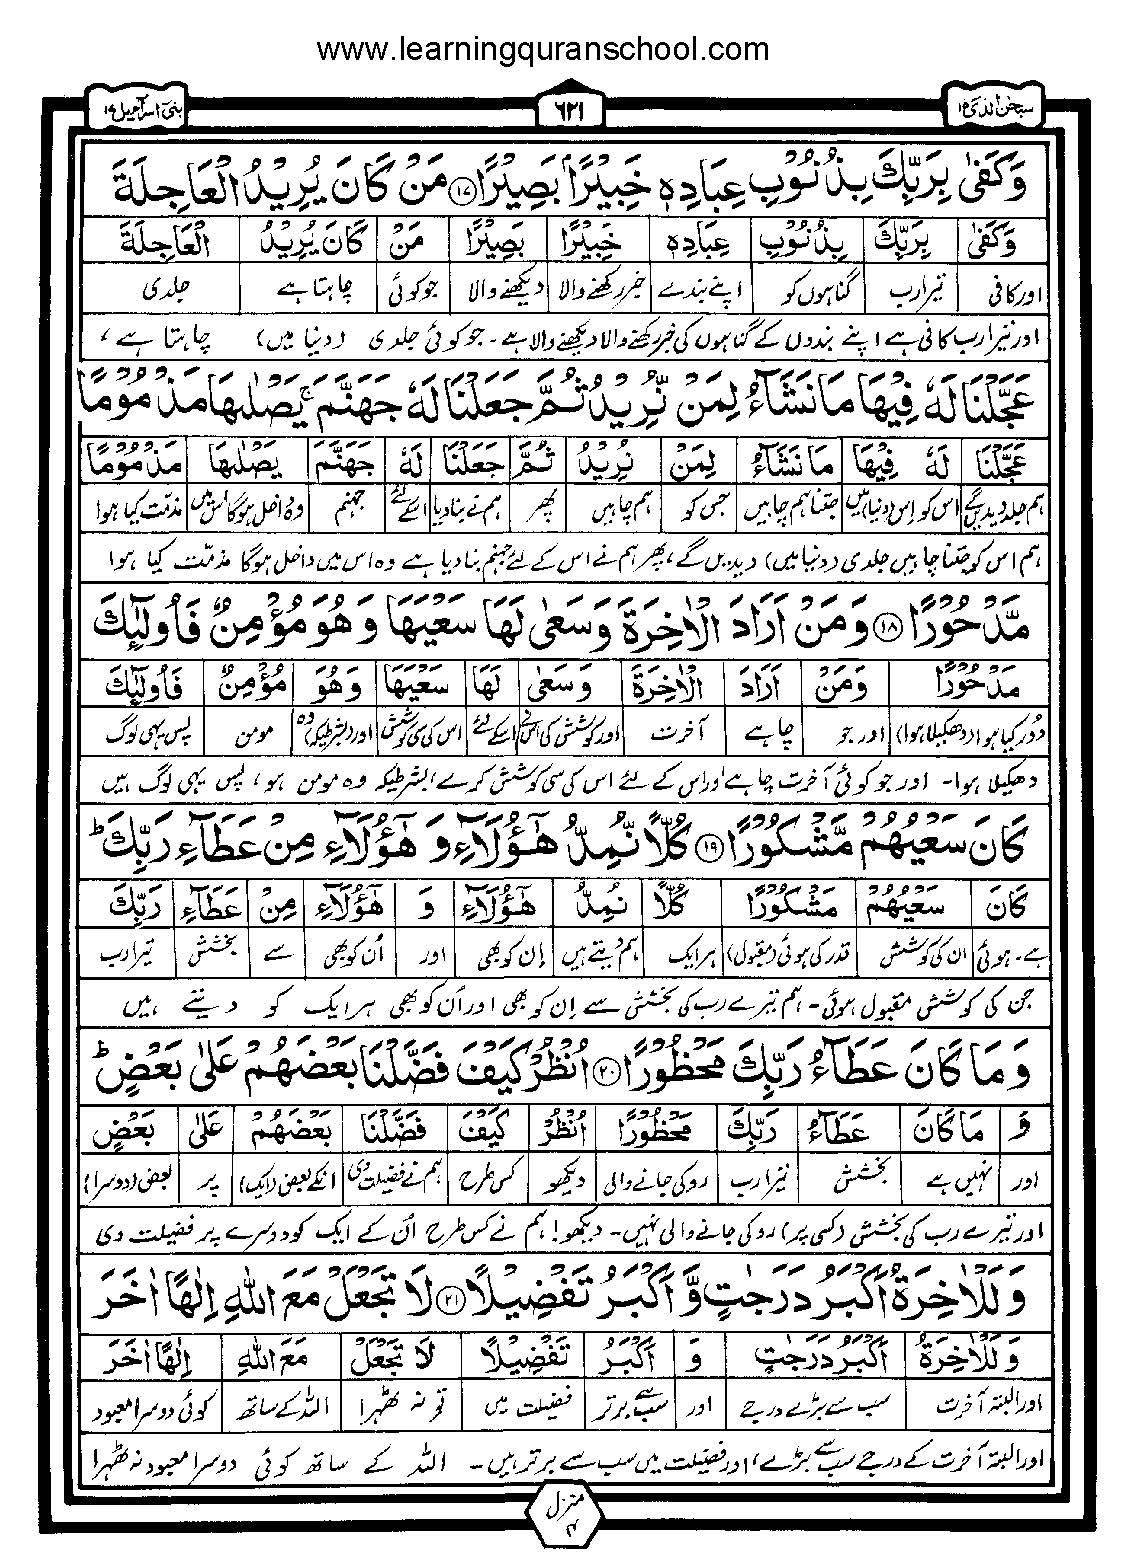 www.learningquranschool.com
سبحٰن الذی ۱۵
۶۲۱
بنیٓ اسرآءیل ۱۷
وَكَفٰى بِرَبِّكَ بِذُنُوْبِ عِبَادِهٖ خَبِيْرًۢا بَصِيْرًا ۱۷ مَنْ كَانَ يُرِيْدُ الْعَاجِلَةَ
وَكَفٰى بِرَبِّكَ بِذُنُوْبِ عِبَادِهٖ خَبِيْرًۢا بَصِيْرًا مَنْ كَانَ يُرِيْدُ الْعَاجِلَةَ
اور کافی تیرا رب گناہوں کو اپنے بندے خبر رکھنے والا دیکھنے والا جو کوئی چاہتا ہے جلدی
اور تیرا رب کافی ہے اپنے بندوں کے گناہوں کی خبر رکھنے والا دیکھنے والا ہے۔ جو کوئی جلدی (دنیا میں) چاہتا ہے،
عَجَّلْنَا لَهٗ فِيْهَا مَا نَشَآءُ لِمَنْ نُّرِيْدُ ثُمَّ جَعَلْنَا لَهٗ جَهَنَّمَ ۚ يَصْلٰىهَا مَذْمُوْمًا
عَجَّلْنَا لَهٗ فِيْهَا مَا نَشَآءُ لِمَنْ نُرِيْدُ ثُمَّ جَعَلْنَا لَهٗ جَهَنَّمَ يَصْلٰىهَا مَذْمُوْمًا
ہم جلد دیدیں گے اس کو اس (دنیا) میں جتنا ہم چاہیں جس کو ہم چاہیں پھر ہم نے بنا دیا اسکے لئے جہنم وہ داخل ہوگا اس میں مذمت کیا ہوا
ہم اس کو جتنا چاہیں جلدی (دنیا میں) دیدیں گے، پھر ہم نے اس کے لئے جہنم بنا دیا ہے وہ اس میں داخل ہوگا مذمّت کیا ہوا
مَّدْحُوْرًا ۱۸ وَمَنْ اَرَادَ الْاٰخِرَةَ وَسَعٰى لَهَا سَعْيَهَا وَهُوَ مُؤْمِنٌ فَاُولٰٓئِكَ
مَدْحُوْرًا وَمَنْ اَرَادَ الْاٰخِرَةَ وَسَعٰى لَهَا سَعْيَهَا وَهُوَ مُؤْمِنٌ فَاُولٰٓئِكَ
دُور کیا ہوا (دھکیلا ہوا) اور جو چاہے آخرت اور کوشش کی اس نے اسکے لئے اس کی سی کوشش اور (بشرطیکہ) وہ مومن پس یہی لوگ
دھکیلا ہوا۔ اور جو کوئی آخرت چاہے اور اس کے لئے اس کی سی کوشش کرے، بشرطیکہ وہ مومن ہو، پس یہی لوگ ہیں
كَانَ سَعْيُهُمْ مَّشْكُوْرًا ۱۹ كُلًّا نُّمِدُّ هٰٓؤُلَآءِ وَ هٰٓؤُلَآءِ مِنْ عَطَآءِ رَبِّكَ ؕ
كَانَ سَعْيُهُمْ مَشْكُوْرًا كُلًّا نُمِدُّ هٰٓؤُلَآءِ وَ هٰٓؤُلَآءِ مِنْ عَطَآءِ رَبِّكَ
ہے۔ ہوئی ان کی کوشش قدر کی ہوئی (مقبول) ہر ایک ہم دیتے ہیں اِن کو بھی اور اُن کو بھی سے بخشش تیرا رب
جن کی کوشش مقبول ہوئی۔ ہم تیرے رب کی بخشش سے اِن کو بھی اور اُن کو بھی ہر ایک کو دیتے ہیں
وَمَا كَانَ عَطَآءُ رَبِّكَ مَحْظُوْرًا ۲۰ اُنْظُرْ كَيْفَ فَضَّلْنَا بَعْضَهُمْ عَلٰى بَعْضٍ ؕ
وَ مَا كَانَ عَطَآءُ رَبِّكَ مَحْظُوْرًا اُنْظُرْ كَيْفَ فَضَّلْنَا بَعْضَهُمْ عَلٰى بَعْضٍ
اور نہیں ہے بخشش تیرا رب روکی جانے والی دیکھو کس طرح ہم نے فضیلت دی انکے بعض (ایک) پر بعض (دوسرا)
اور تیرے رب کی بخشش (کسی پر) روکی جانے والی نہیں۔ دیکھو! ہم نے کس طرح اُن کے ایک کو دوسرے پر فضیلت دی
وَلَلْاٰخِرَةُ اَكْبَرُ دَرَجٰتٍ وَّاَكْبَرُ تَفْضِيْلًا ۲۱ لَا تَجْعَلْ مَعَ اللّٰهِ اِلٰهًا اٰخَرَ
وَلَلْاٰخِرَةُ اَكْبَرُ دَرَجٰتٍ وَ اَكْبَرُ تَفْضِيْلًا لَا تَجْعَلْ مَعَ اللّٰهِ اِلٰهًا اٰخَرَ
اور البتہ آخرت سب سے بڑے درجے اور سب سے برتر فضیلت میں تو نہ ٹھہرا اللہ کے ساتھ کوئی دوسرا معبود
اور البتہ آخرت کے درجے سب سے بڑے، اور فضیلت میں سب سے برتر ہیں۔ اللہ کے ساتھ کوئی دوسرا معبود نہ ٹھہرا
منزل ۴